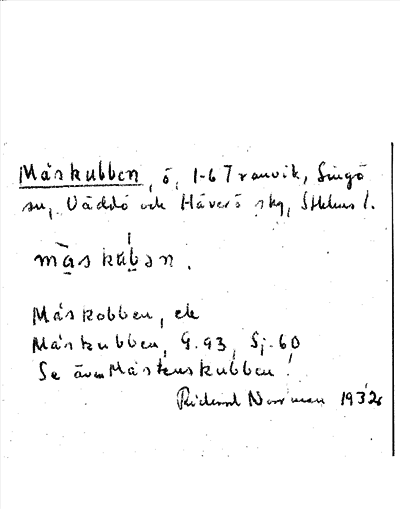 Måskubben, ö, 1-6 Tranvik, Singö
sn, Väddö och Häverö skg, Sthlms l.
måskub̄ən.
Måskobben, ek
Måskubben, G.93, Sj.60
Se även Måstenskubben!
Rickard Norrman 1932